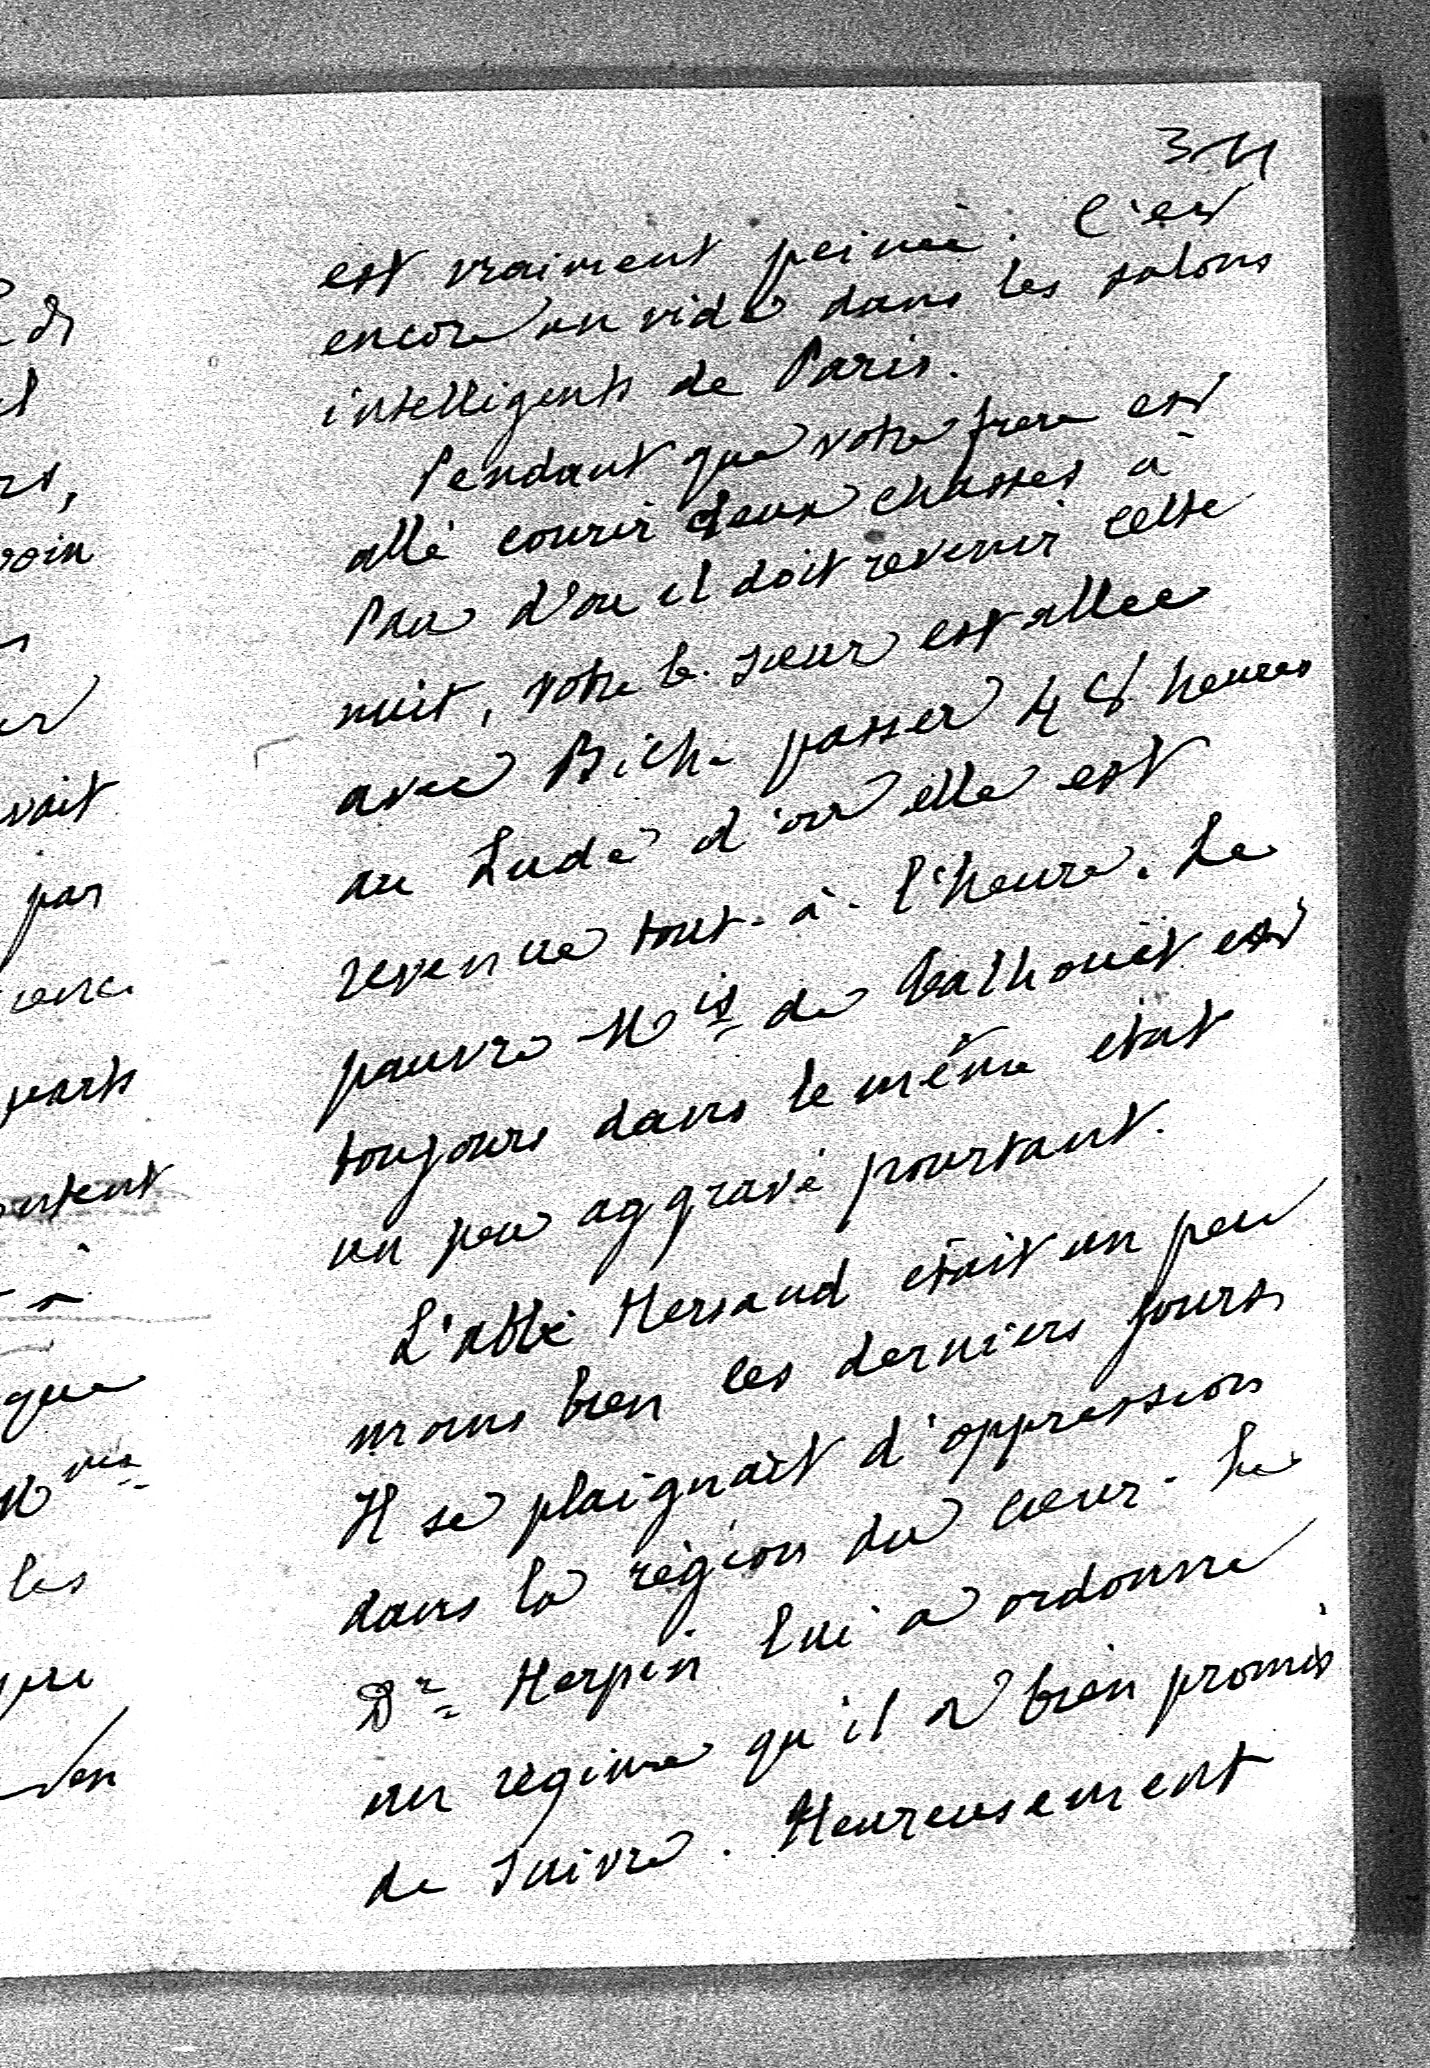 est vraiment peinée. C'est
encore un vide dans les salons
intelligents de Paris.
Pendant que votre frere est
allé courir deux chasses à
Pau d'ou il doit revenir cette
nuit, votre b. sœur est allée
avec Bich. passer 48 heures
au Lude d'ou elle est
revenue tout-à-l'heure. Le
pauvre Mis de Talhouët est
toujours dans le même état
un peu aggravé pourtant.
L'abbé Hersaud était un peu
moins bien ces derniers jours
Il se plaignait d'oppression
dans la région du cœur. Le
Dr Herpin lui a ordonné
un régime qu'il a bien promis
de suivre. Heureusement
di
voin
vait
par
parts
que
les